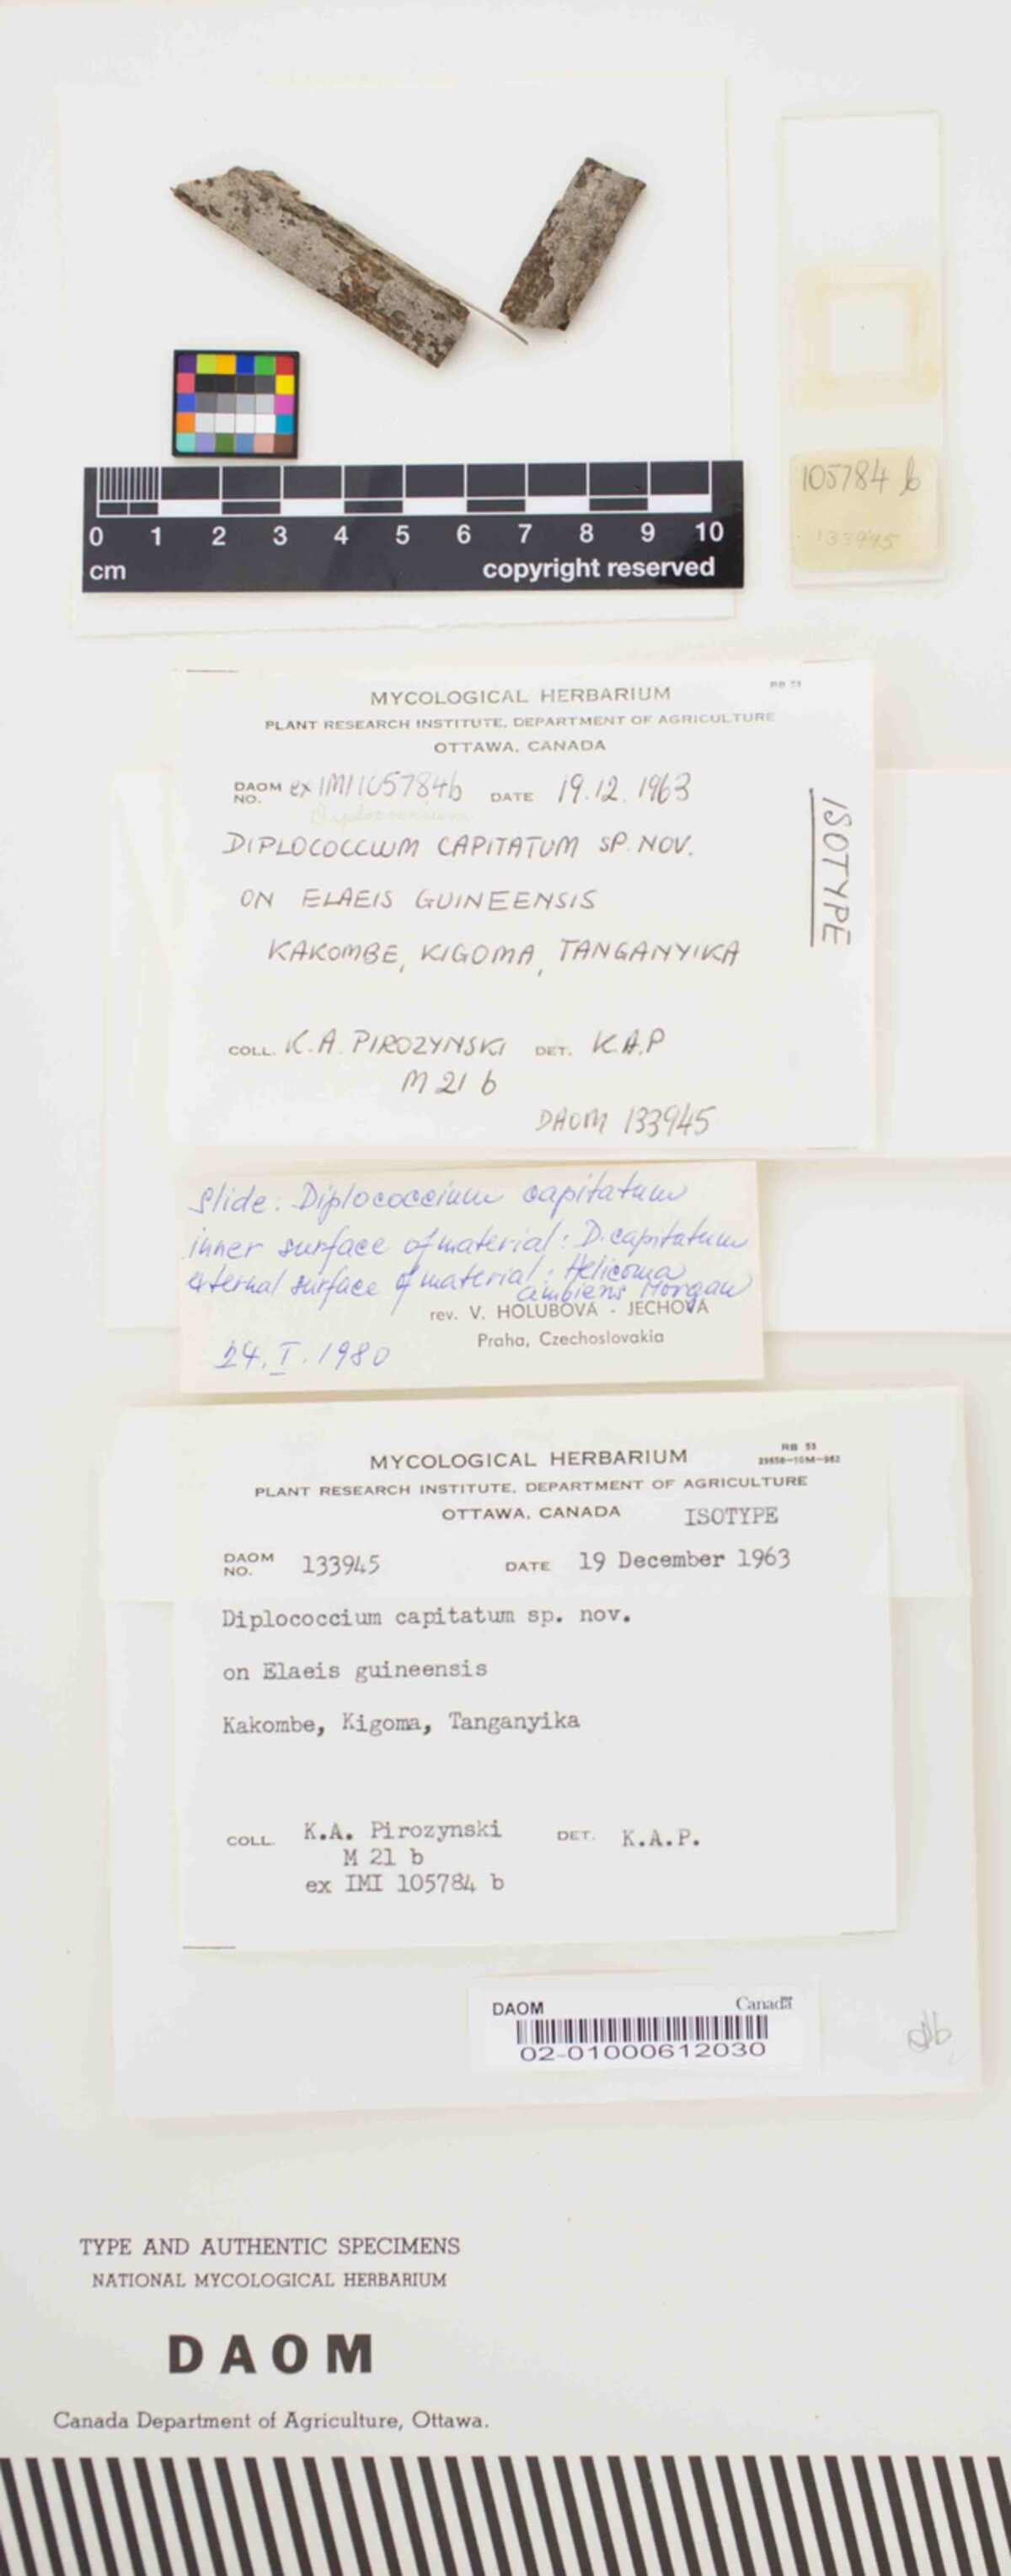 105784 b
133945
0 1 2 3 4 5 6 7 8 9 10
cm copyright reserved
RB 53
MYCOLOGICAL HERBARIUM
PLANT RESEARCH INSTITUTE, DEPARTMENT OF AGRICULTURE
OTTAWA, CANADA
DAOM NO. ex IMI 105784b DATE 19.12.1963
Diplococcium
DIPLOCOCCIUM CAPITATUM SP. NOV.
ON ELAEIS GUINEENSIS
KAKOMBE, KIGOMA, TANGANYIKA
ISOTYPE
COLL. K.A. PIROZYNSKI DET. K.A.P
M 21 b
DAOM 133945
Slide: Diplococcium capitatum
inner surface of material: D. capitatum
external surface of material: Helicoma
ambiens Morgan
rev. V. HOLUBOVÁ - JECHOVÁ
Praha, Czechoslovakia
24. I. 1980
RB 53
MYCOLOGICAL HERBARIUM
PLANT RESEARCH INSTITUTE, DEPARTMENT OF AGRICULTURE
OTTAWA, CANADA ISOTYPE
DAOM NO. 133945 DATE 19 December 1963
Diplococcium capitatum sp. nov.
on Elaeis guineensis
Kakombe, Kigoma, Tanganyika
COLL. K.A. Pirozynski DET. K.A.P.
M 21 b
ex IMI 105784 b
DAOM Canada
02-01000612030
TYPE AND AUTHENTIC SPECIMENS
NATIONAL MYCOLOGICAL HERBARIUM
DAOM
Canada Department of Agriculture, Ottawa.